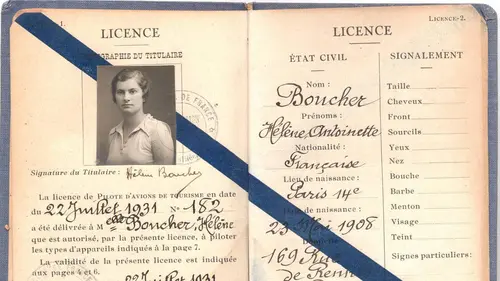 1.
LICENCE
PHOTOGRAPHIE DU TITULAIRE
DE FRANCE
Signature du Titulaire : Hélène Boucher
La licence de PILOTE D'AVIONS DE TOURISME en date
du 22 Juillet 1931 N° 182
a été délivrée à M Boucher, Hélène
que est autorisé, par la présente licence, à piloter
les types d'appareils indiqués à la page 7.
La validité de la présente licence est indiquée
aux pages 4 et 6.
22 Juillet 1931
LICENCE-2.
LICENCE
ÉTAT CIVIL
Nom :
Boucher
Prénoms :
Hélène, Antoinette
Nationalité :
Française
Lieu de naissance :
Paris 14e
de naissance :
23 Mai 1908
169 Rue
de Rennes
SIGNALEMENT
Taille
Cheveux
Front
Sourcils
Yeux
Nez
Bouche
Barbe
Menton
Visage
Teint
Signes particuliers :